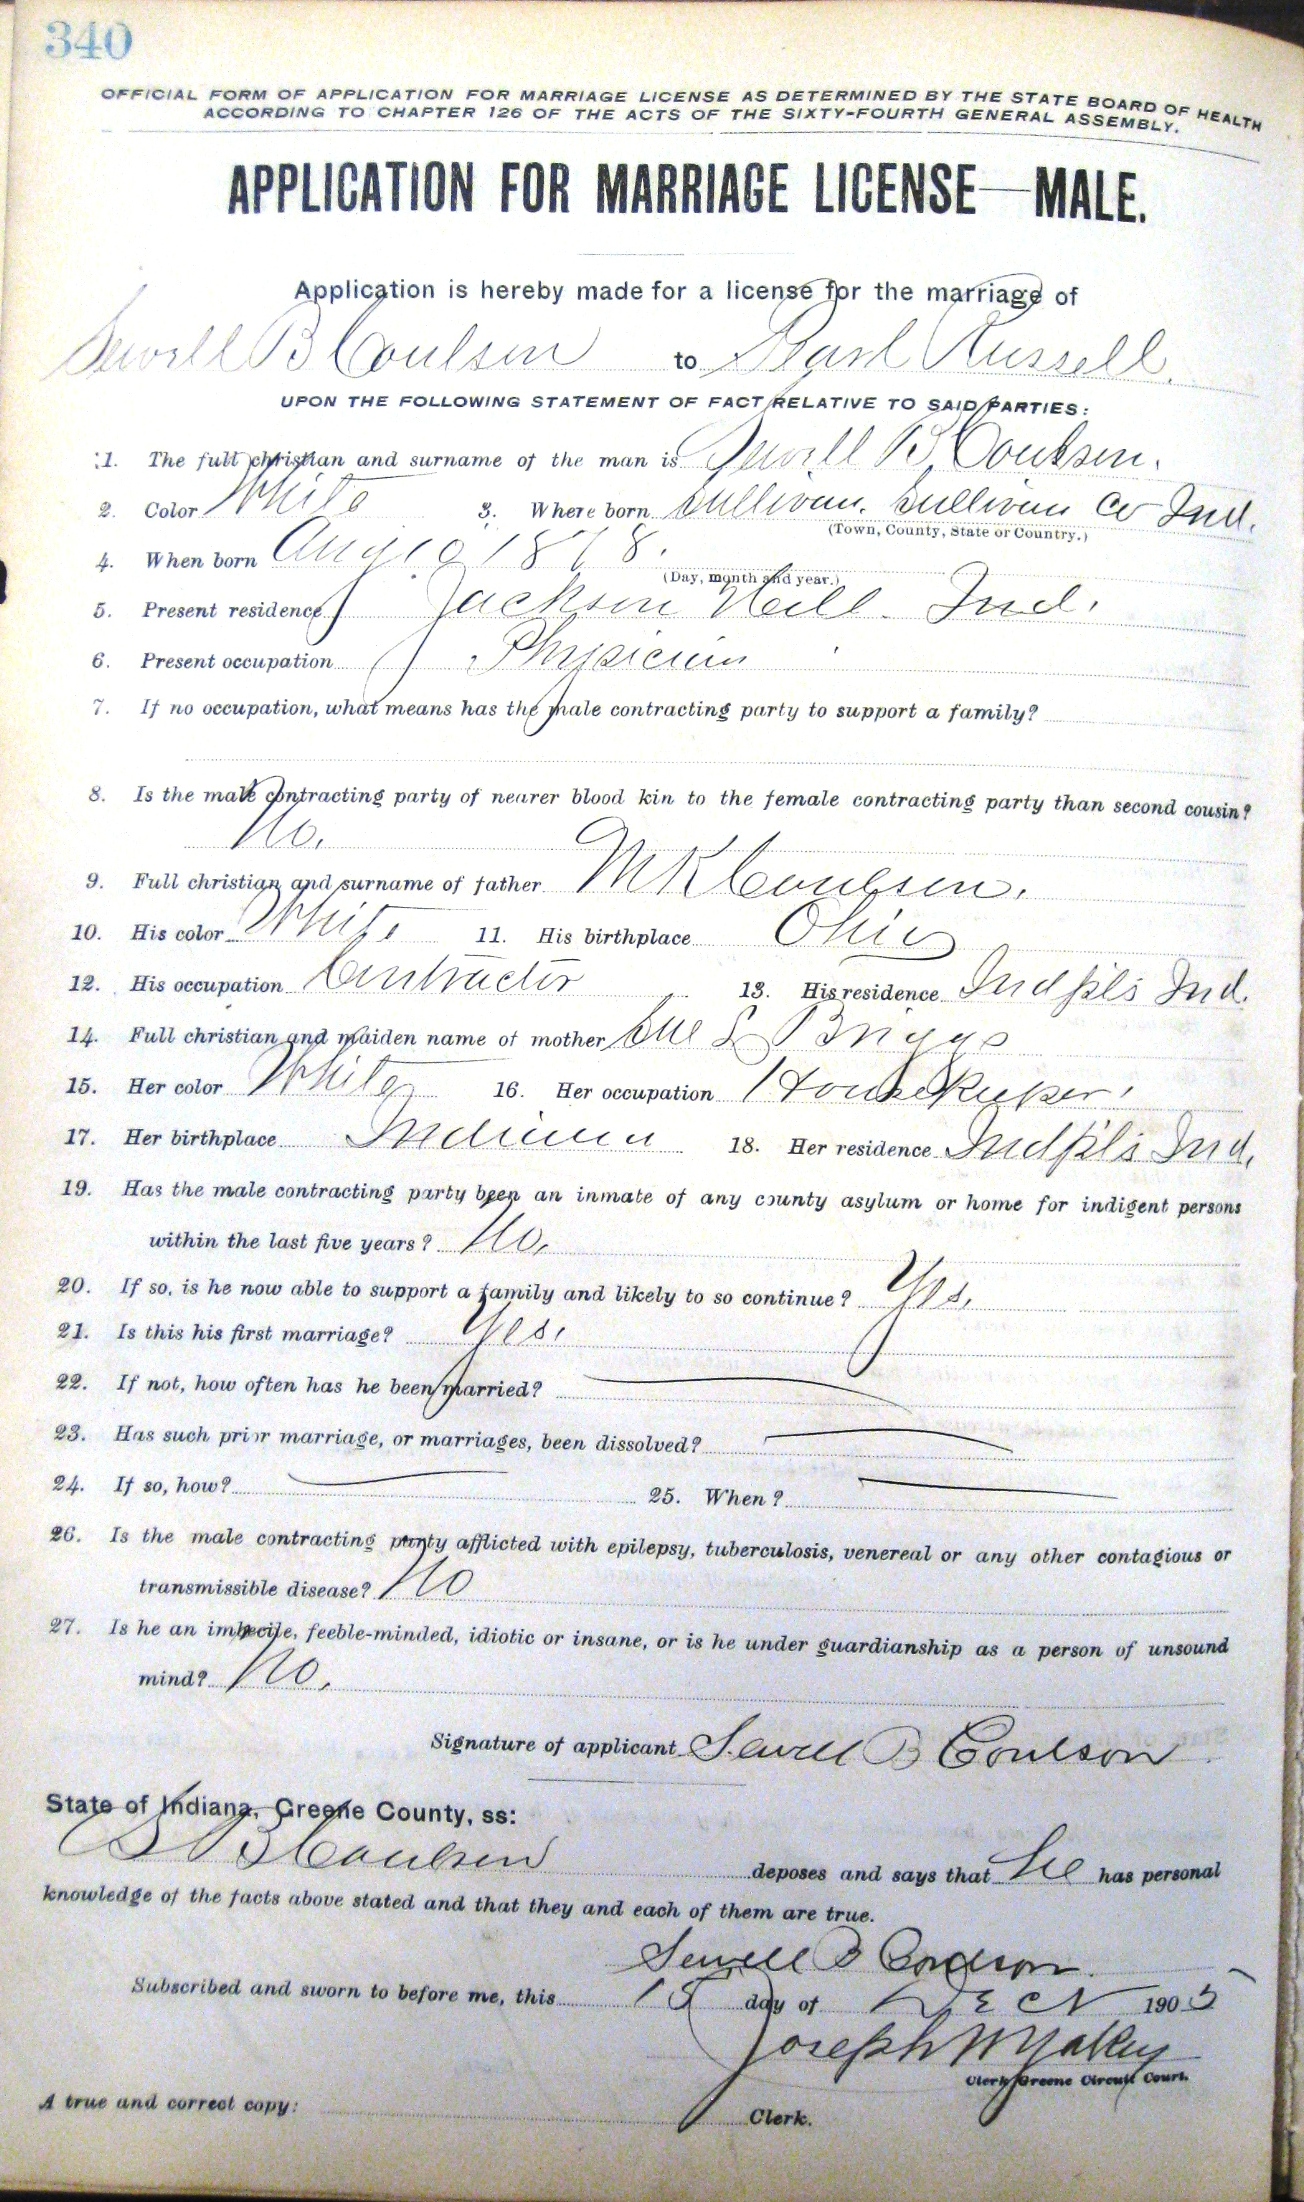 340
OFFICIAL FORM OF APPLICATION FOR MARRIAGE LICENSE AS DETERMINED BY THE STATE BOARD OF HEALTH
ACCORDING TO CHAPTER 126 OF THE ACTS OF THE SIXTY-FOURTH GENERAL ASSEMBLY.
APPLICATION FOR MARRIAGE LICENSE—MALE.
Application is hereby made for a license for the marriage of
Sewell B Coulson to Pearl Russell.
UPON THE FOLLOWING STATEMENT OF FACT RELATIVE TO SAID PARTIES:
1. The full christian and surname of the man is Sewell B Coulson.
2. Color White 3. Where born Sullivan, Sullivan Co Ind.
(Town, County, State or Country.)
4. When born Aug 19 1878.
(Day, month and year.)
5. Present residence Jackson Hill. Ind.
6. Present occupation Physician
7. If no occupation, what means has the male contracting party to support a family?
8. Is the male contracting party of nearer blood kin to the female contracting party than second cousin?
No.
9. Full christian and surname of father M K Coulson.
10. His color White 11. His birthplace Ohio
12. His occupation Contractor 13. His residence Indpls Ind.
14. Full christian and maiden name of mother Sue L Briggs
15. Her color White 16. Her occupation Housekeeper.
17. Her birthplace Indiana 18. Her residence Indpls Ind.
19. Has the male contracting party been an inmate of any county asylum or home for indigent persons
within the last five years? No.
20. If so, is he now able to support a family and likely to so continue? Yes.
21. Is this his first marriage? Yes.
22. If not, how often has he been married?
23. Has such prior marriage, or marriages, been dissolved?
24. If so, how? 25. When?
26. Is the male contracting party afflicted with epilepsy, tuberculosis, venereal or any other contagious or
transmissible disease? No
27. Is he an imbecile, feeble-minded, idiotic or insane, or is he under guardianship as a person of unsound
mind? No.
Signature of applicant Sewell B Coulson
State of Indiana, Greene County, ss:
S B Coulson deposes and says that he has personal
knowledge of the facts above stated and that they and each of them are true.
Sewell B Coulson.
Subscribed and sworn to before me, this 15 day of Dec 1905
Joseph W Yakey
Clerk Greene Circuit Court.
A true and correct copy: Clerk.